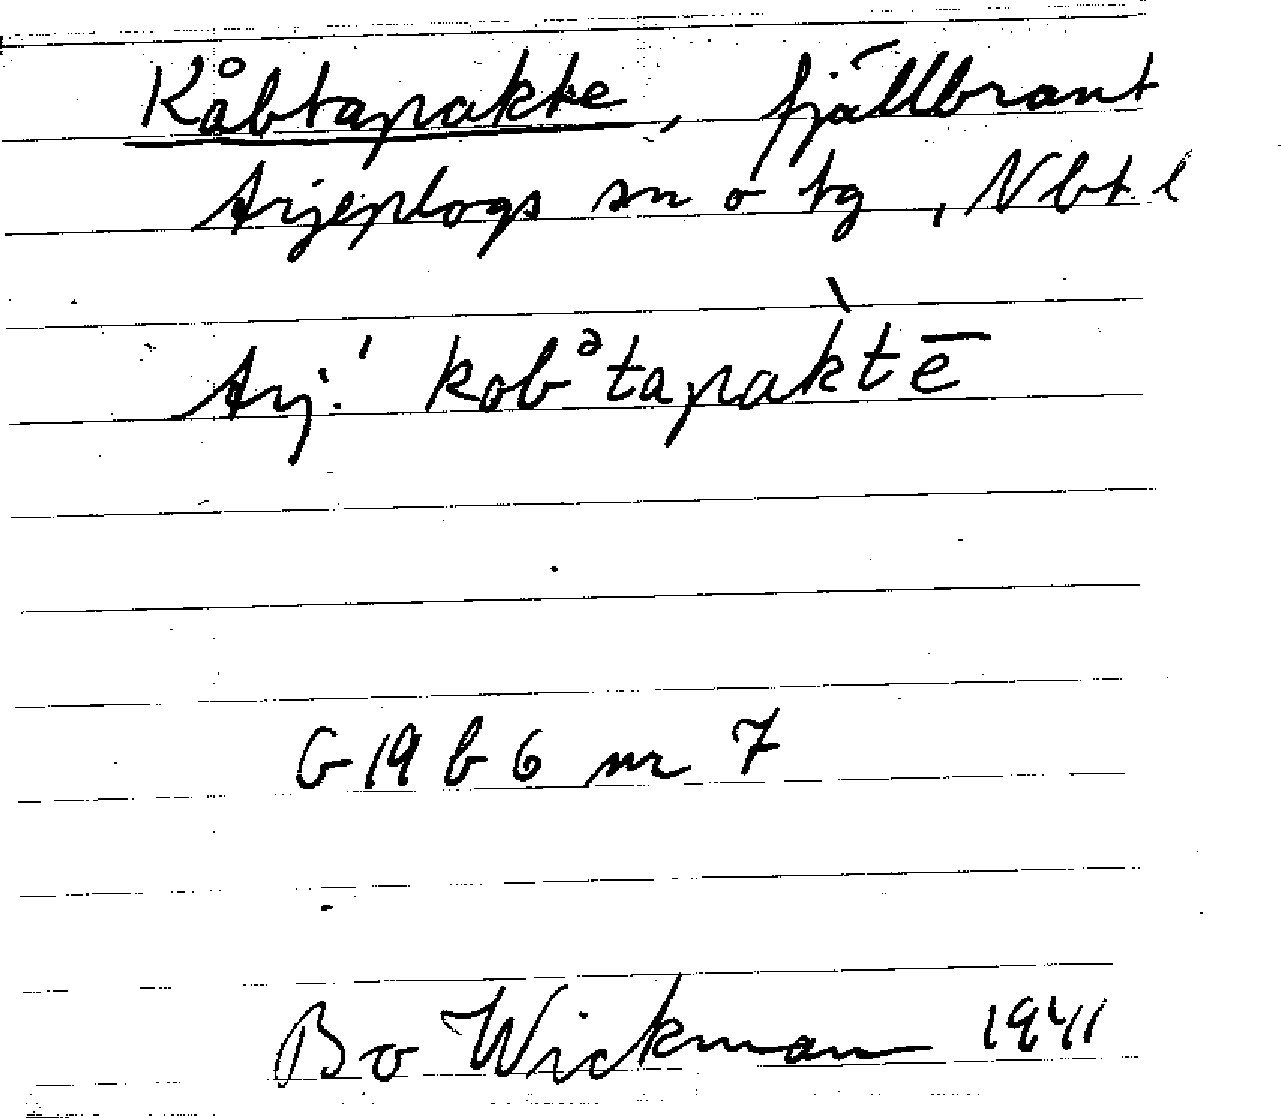 Kåbtapakte, fjällbrant
Arjeplogs sn o tg, Nbt. l
Arj. ˈkobᵊtapàktē
G 19 b 6 nr 7
Bo Wickman 1941